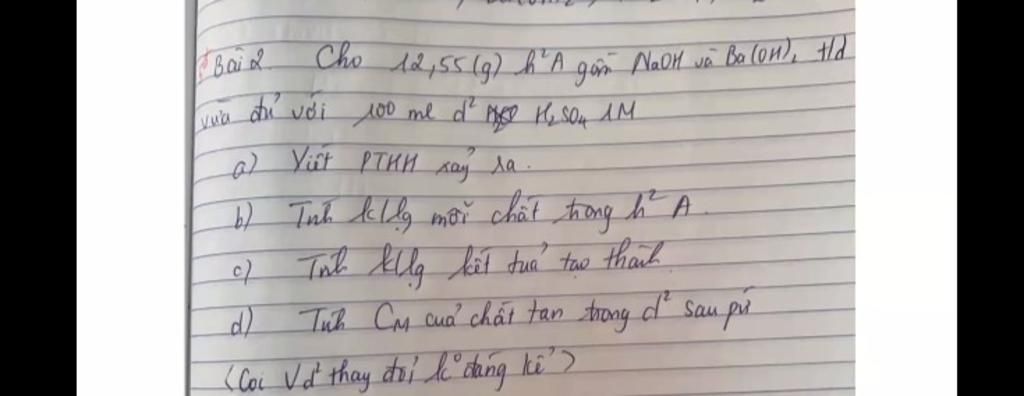 Bài 2. Cho 12,55(g) h²A gồm NaOH và Ba(OH)₂ t/d
vừa đủ với 100 ml d² H₂SO₄ 1M
a) Viết PTHH xảy ra.
b) Tính k/lg mỗi chất trong h² A.
c) Tính k/lg kết tủa tạo thành
d) Tính CM của chất tan trong d² sau pứ
(Coi Vd² thay đổi k° đáng kể)